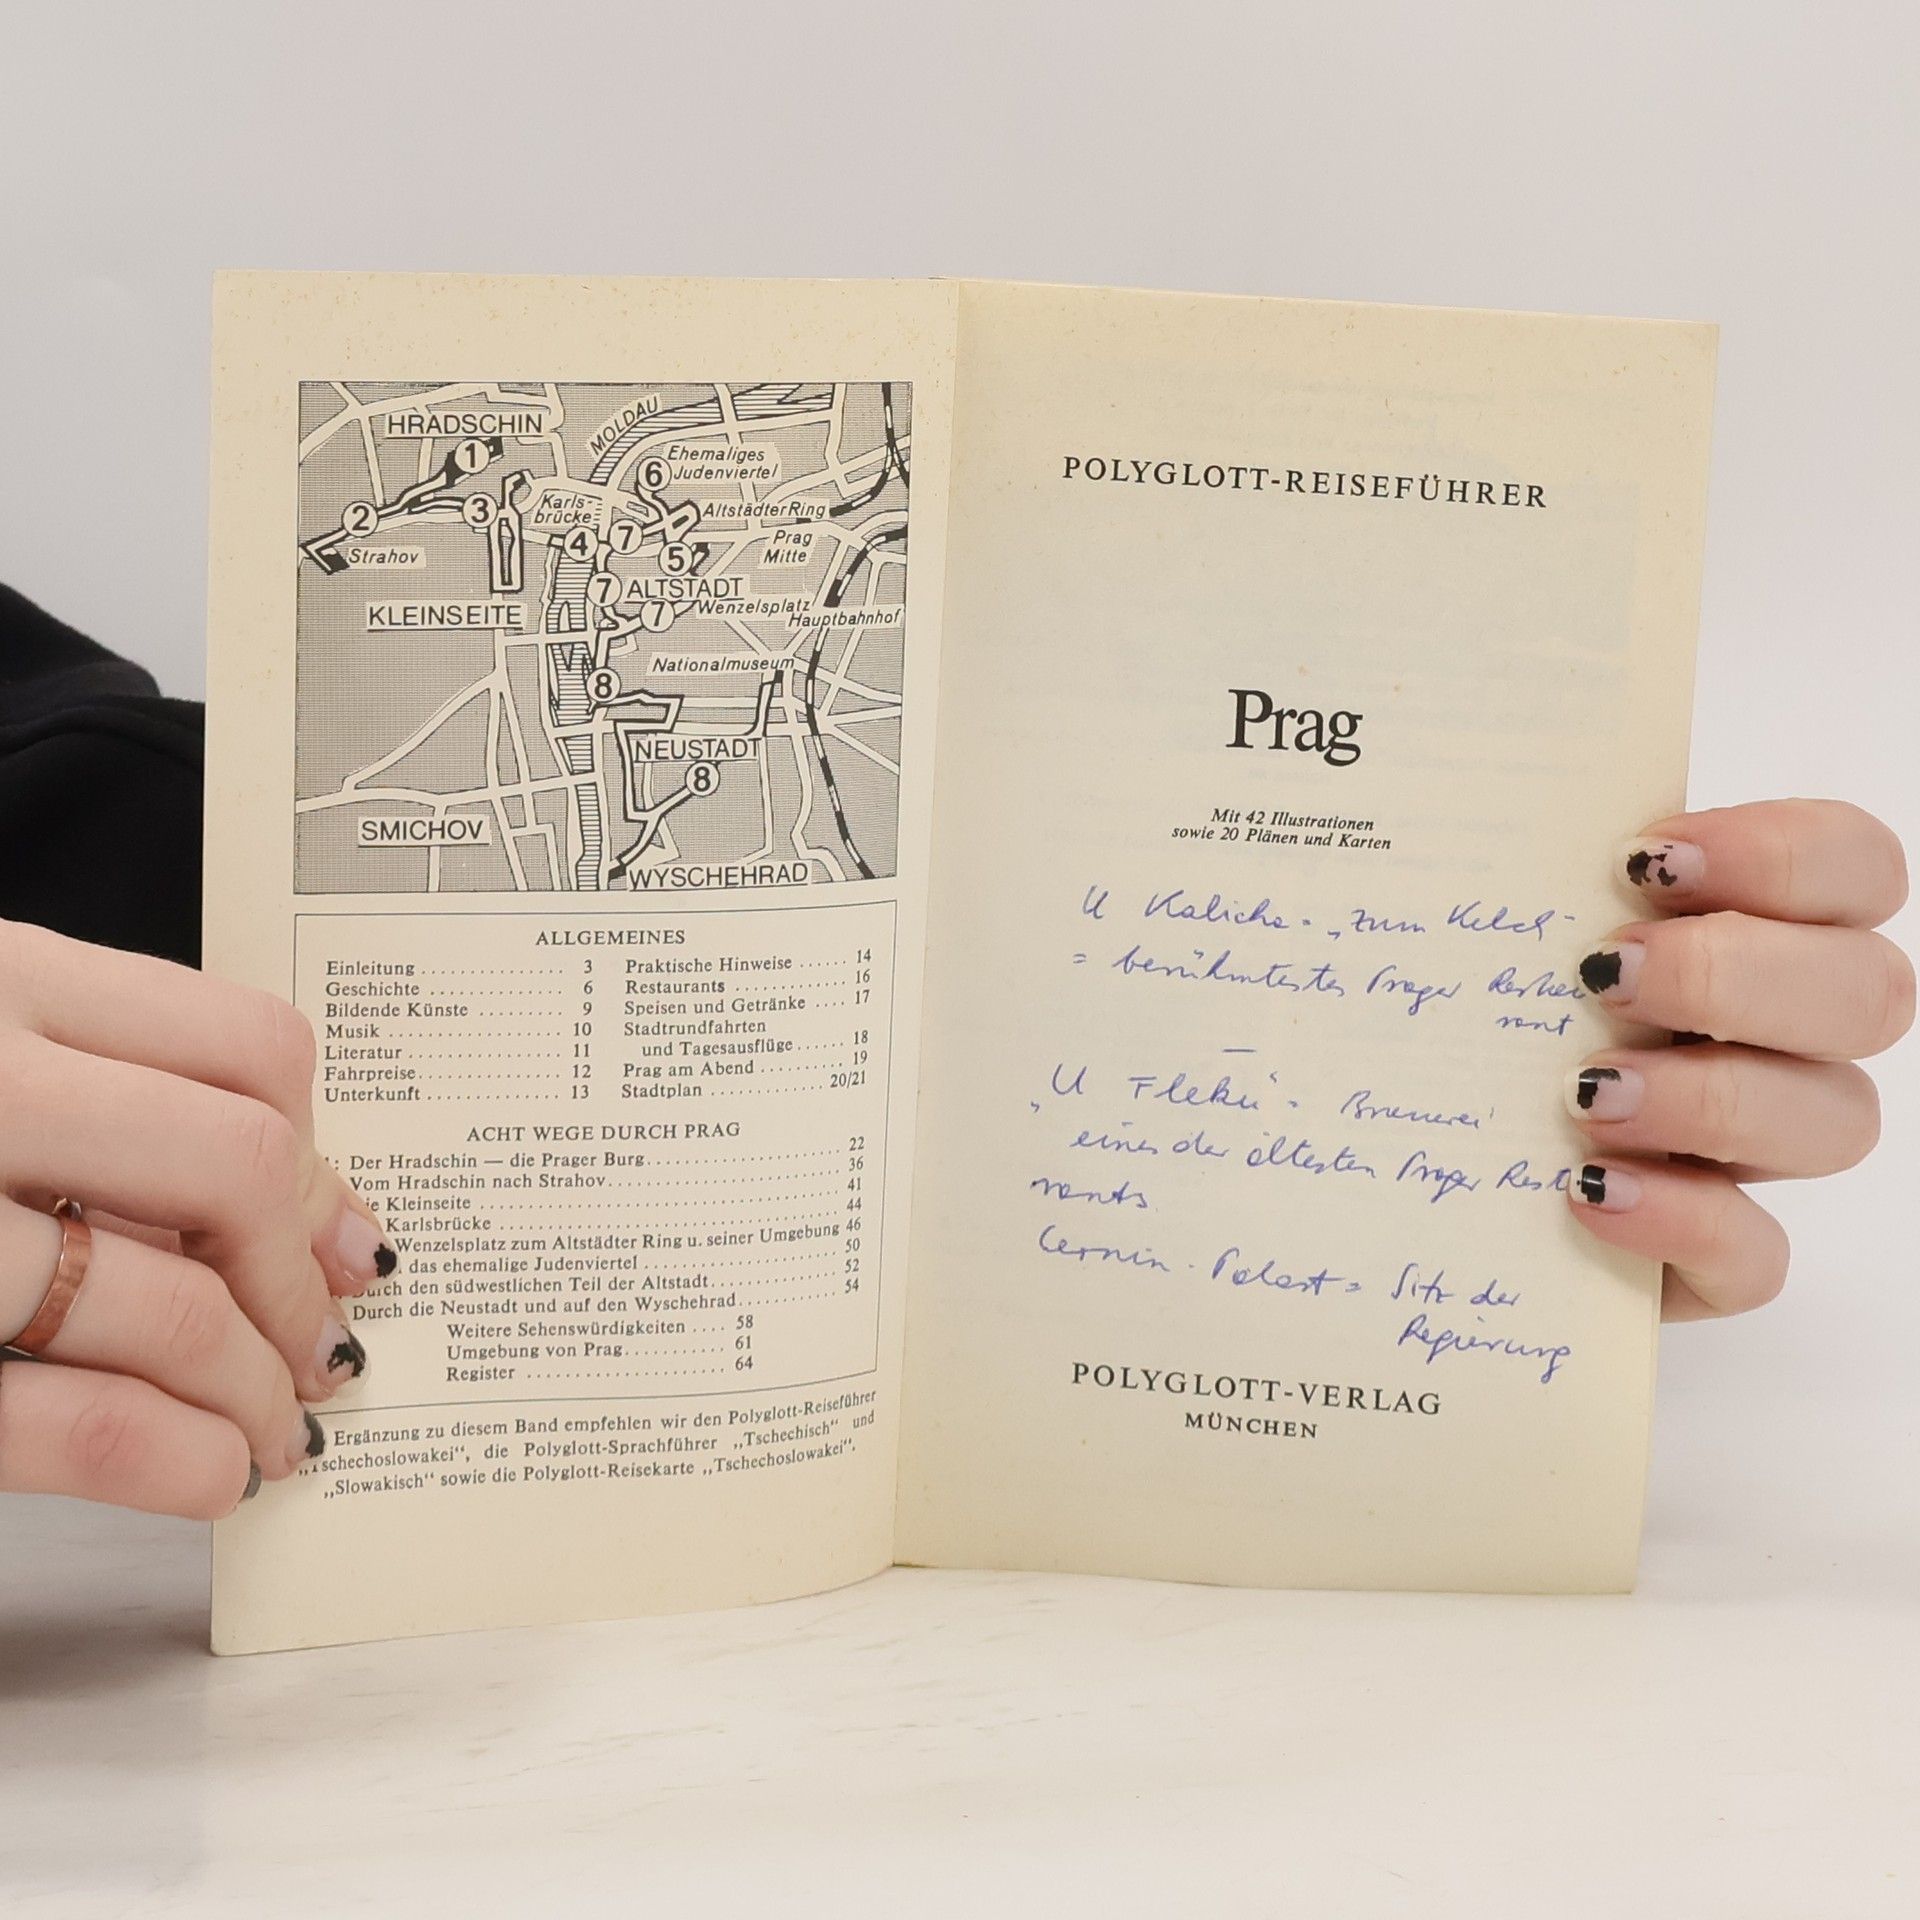 HRADSCHIN
MOLDAU
1
Ehemaliges
6 Judenviertel
2
3
Karls-
brücke
Altstädter Ring
4
7
5
Prag
Mitte
Strahov
7 ALTSTADT
KLEINSEITE
7
Wenzelsplatz
Hauptbahnhof
Nationalmuseum
8
NEUSTADT
8
SMICHOV
WYSCHEHRAD
ALLGEMEINES
Einleitung ............... 3
Geschichte .............. 6
Bildende Künste ......... 9
Musik .................. 10
Literatur ................ 11
Fahrpreise............... 12
Unterkunft .............. 13
Praktische Hinweise ...... 14
Restaurants ............. 16
Speisen und Getränke .... 17
Stadtrundfahrten
und Tagesausflüge...... 18
Prag am Abend .......... 19
Stadtplan ........... 20/21
ACHT WEGE DURCH PRAG
: Der Hradschin — die Prager Burg.................... 22
Vom Hradschin nach Strahov........................ 36
ie Kleinseite ..................................... 41
Karlsbrücke .................................... 44
Wenzelsplatz zum Altstädter Ring u. seiner Umgebung 46
das ehemalige Judenviertel ..................... 50
Durch den südwestlichen Teil der Altstadt............. 52
Durch die Neustadt und auf den Wyschehrad........... 54
Weitere Sehenswürdigkeiten .... 58
Umgebung von Prag........... 61
Register ..................... 64
Ergänzung zu diesem Band empfehlen wir den Polyglott-Reiseführer
„Tschechoslowakei“, die Polyglott-Sprachführer „Tschechisch“ und
„Slowakisch“ sowie die Polyglott-Reisekarte „Tschechoslowakei“.
POLYGLOTT-REISEFÜHRER
Prag
Mit 42 Illustrationen
sowie 20 Plänen und Karten
U Kalicha = „zum Kelch“
= berühmtestes Prager Restau
rant
„U Flekú“ = Brauerei
eines der ältesten Prager Rest
rants
Cernin - Palast = Sitz der
Regierung
POLYGLOTT-VERLAG
MÜNCHEN